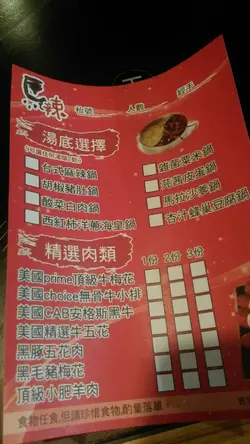 辣
枱號
人數
經手
湯底選擇
台式麻辣鍋
胡椒豬肚鍋
酸菜白肉鍋
西紅柿洋蔥海皇鍋
雞茵粟米鍋
芫茜皮蛋鍋
馬拉沙爹鍋
杏汁蜂巢豆腐鍋
精選肉類
1份 2份 3份
美國prime頂級牛梅花
美國choice無骨牛小排
美國CAB安格斯黑牛
美國精選牛五花
黑豚五花肉
黑毛豬梅花
頂級小肥羊肉
食物任食,但請珍惜食物,酌量落單